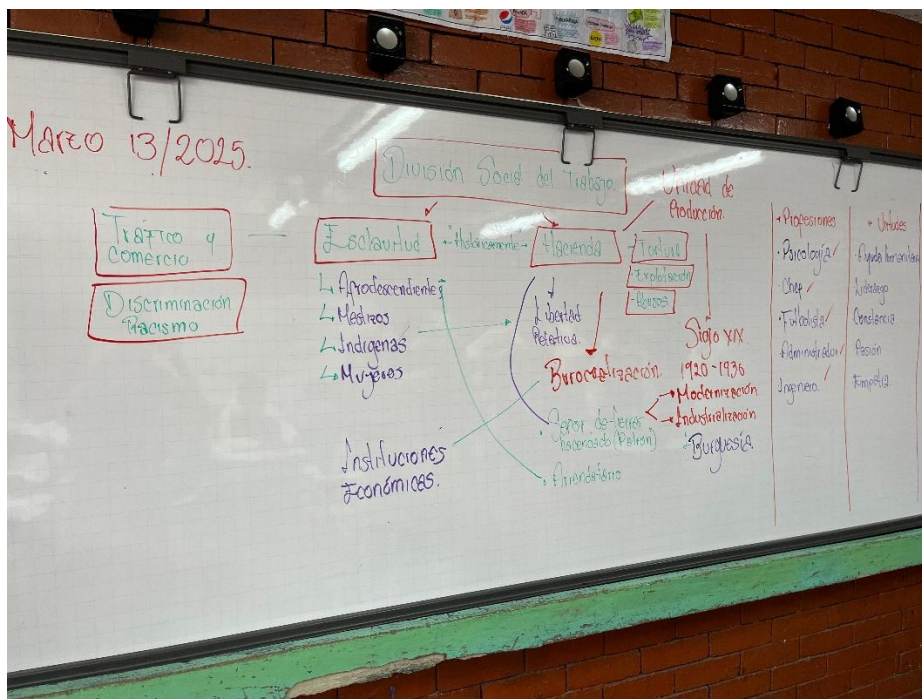 Marzo 13/2025.
División Social del Trabajo.
Unidad de
Producción.
Tráfico y
comercio
Esclavitud
Históricamente
Hacienda
-Tortura
-Explotación
-Abusos
Discriminación
Racismo
Afrodescendientes
Mestizos
Indígenas
Mujeres
Libertad
Relativa.
Burocratización.
Siglo XIX
1920-1936
Modernización
Industrialización
Burguesía.
Señor de tierras
hacendado (Patrón)
Arrendatario
Instituciones
Económicas.
Profesiones
Psicología
Chef
Futbolista
Administrador
Ingeniero.
Virtudes
Ayuda humanitaria
Liderazgo
Constancia
Pasión
Empatía.